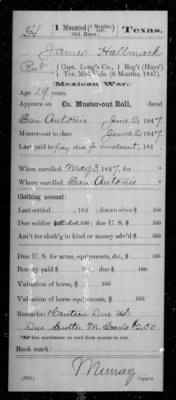 H 1 Mounted (6 Months, 1847. Oct. Hays') Texas.
James Hallmark
Pvt, Capt. Long's Co., 1 Reg't (Hays')
Tex. Mtd. Vols. (6 Months, 1847).
Mexican War.
Age 19 years.
Appears on Co. Muster-out Roll, dated
San Antonio June 2, 1847
Muster-out to date June 2, 1847
Last paid to Pay due fr enrolment, 184
Where enrolled May 3, 1847, for
Where enrolled San Antonio
Clothing account:
Last settled, 184; drawn since $ 100
Due soldier $ 100; due U. S. $ 100
Am't for cloth'g in kind or money adv'd $ 100
Due U. S. for arms, equipments, &c., $ 100
Bounty paid $ 100; due $ 100
Valuation of horse, $ 100
Valuation of horse equipments, $ 100
Remarks: Canteen Due U.S.
Due Sutler M. $2.50
*It has enrollment on card from muster-in roll.
Book mark:
Murray
Copyist.